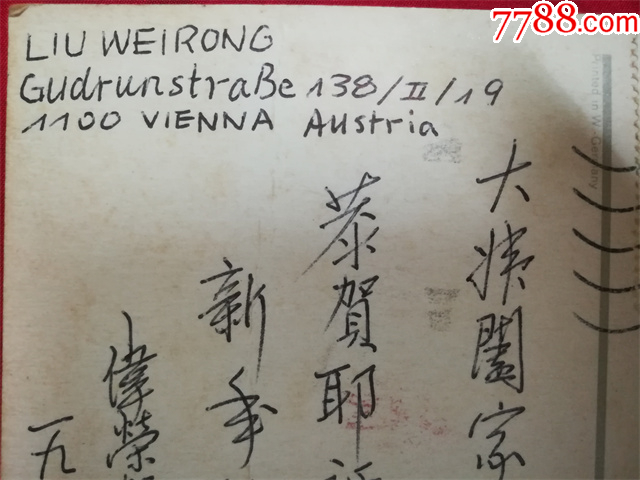 7788.com
LIU WEIRONG
Gudrunstraße 138/II/19
1100 VIENNA Austria
Printed in W-Germany
大姨闔家
恭賀耶
新年
偉榮
一九